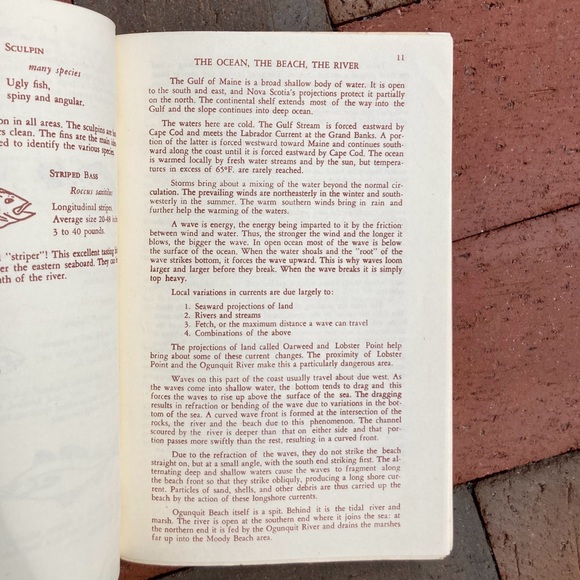 SCULPIN
many species
Ugly fish,
spiny and angular.
on in all areas. The sculpins are
rs clean. The fins are the main
ed to identify the various species.
STRIPED BASS
Roccus saxitiles
Longitudinal stripes.
Average size 20-48
3 to 40 pounds.
"striper"! This excellent tasting
er the eastern seaboard. They can
th of the river.
THE OCEAN, THE BEACH, THE RIVER
11
The Gulf of Maine is a broad shallow body of water. It is open
to the south and east, and Nova Scotia's projections protect it partially
on the north. The continental shelf extends most of the way into the
Gulf and the slope continues into deep ocean.
The waters here are cold. The Gulf Stream is forced eastward by
Cape Cod and meets the Labrador Current at the Grand Banks. A por-
tion of the latter is forced westward toward Maine and continues south-
ward along the coast until it is forced eastward by Cape Cod. The ocean
is warmed locally by fresh water streams and by the sun, but tempera-
tures in excess of 65°F. are rarely reached.
Storms bring about a mixing of the water beyond the normal cir-
culation. The prevailing winds are northeasterly in the winter and south-
westerly in the summer. The warm southern winds bring in rain and
further help the warming of the waters.
A wave is energy, the energy being imparted to it by the friction
between wind and water. Thus, the stronger the wind and the longer it
blows, the bigger the wave. In open ocean most of the wave is below
the surface of the ocean. When the water shoals and the "root" of the
wave strikes bottom, it forces the wave upward. This is why waves loom
larger and larger before they break. When the wave breaks it is simply
top heavy.
Local variations in currents are due largely to:
1. Seaward projections of land
2. Rivers and streams
3. Fetch, or the maximum distance a wave can travel
4. Combinations of the above
The projections of land called Oarweed and Lobster Point help
bring about some of these current changes. The proximity of Lobster
Point and the Ogunquit River make this a particularly dangerous area.
Waves on this part of the coast usually travel about due west. As
the waves come into shallow water, the bottom tends to drag and this
forces the waves to rise up above the surface of the sea. The dragging
results in refraction or bending of the wave due to variations in the bot-
tom of the sea. A curved wave front is formed at the intersection of the
rocks, the river and the beach due to this phenomenon. The channel
scoured by the river is deeper than that on either side and that por-
tion passes more swiftly than the rest, resulting in a curved front.
Due to the refraction of the waves, they do not strike the beach
straight on, but at a small angle, with the south end striking first. The al-
ternating deep and shallow waters cause the waves to fragment along
the beach front so that they strike obliquly, producing a long shore cur-
rent. Particles of sand, shells, and other debris are thus carried up the
beach by the action of these longshore currents.
Ogunquit Beach itself is a spit. Behind it is the tidal river and
marsh. The river is open at the southern end where it joins the sea: at
the northern end it is fed by the Ogunquit River and drains the marshes
far up into the Moody Beach area.